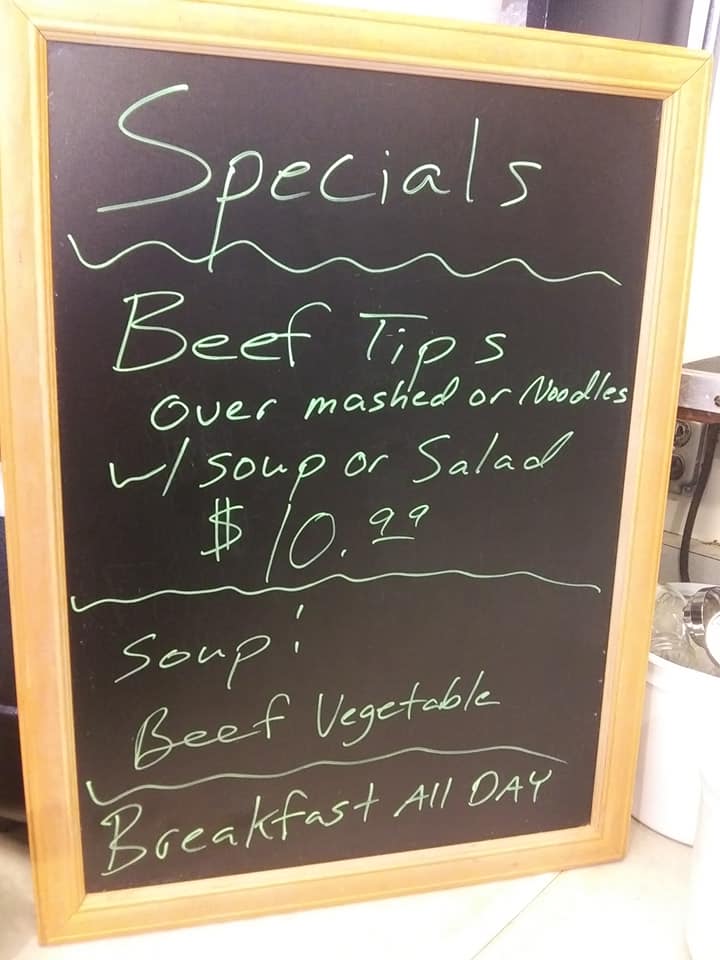 Specials
Beef Tips
over mashed or Noodles
w/ soup or Salad
$10.99
Soup:
Beef Vegetable
Breakfast All DAY